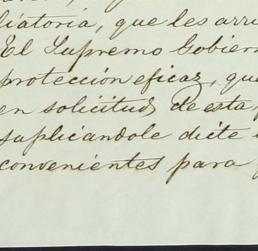 liatoria, que les arri
El Supremo Gobiern
protección eficaz, que
en solicitud de esta
suplicandole dicte
convenientes para